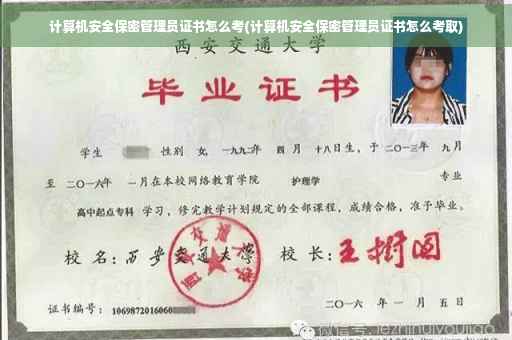 计算机安全保密管理员证书怎么考(计算机安全保密管理员证书怎么考取)
西安交通大学
毕业证书
学生 性别 女, 一九九二年 四 月 十八日生, 于 二〇一三年 九月
至 二〇一六年 一月在本校网络教育学院 护理学 专业
高中起点专科 学习, 修完教学计划规定的全部课程, 成绩合格, 准予毕业。
校 名: 西安交通大学 校 长: 王树国
西安交通大学
证书编号: 1069872016060
二〇一六 年 一 月 五 日
微信号: jiezhinuiyoujiao